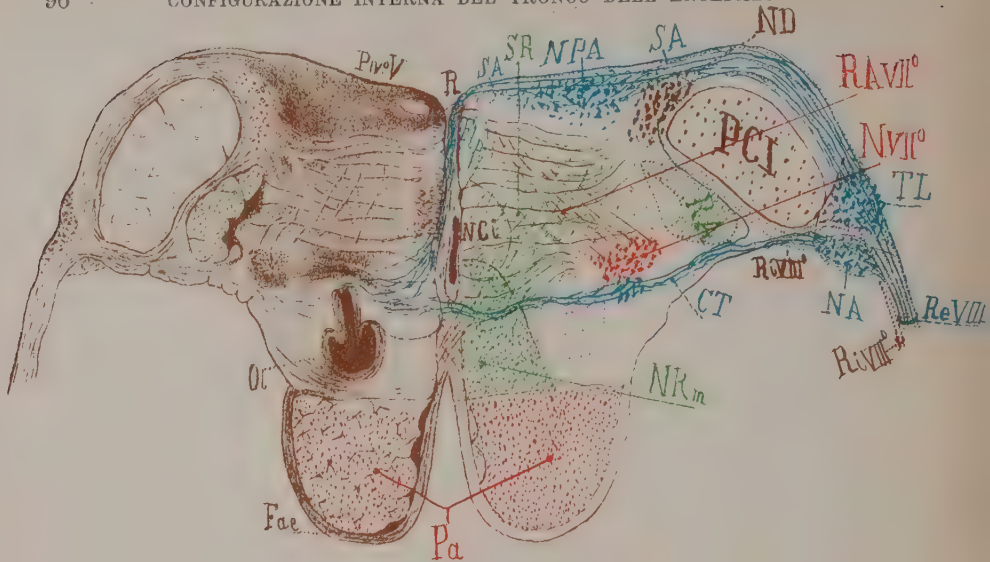 96 CONFIGURAZIONE INTERNA DEL TRONCO
PivoV
R
SA
SR
NPA
SA
ND
RAVIIº
PCI
NVIIº
TL
NCi
RiVIIIº
CT
NA
ReVIII
RiVIIIº
Oi
NRm
Fae
Pa